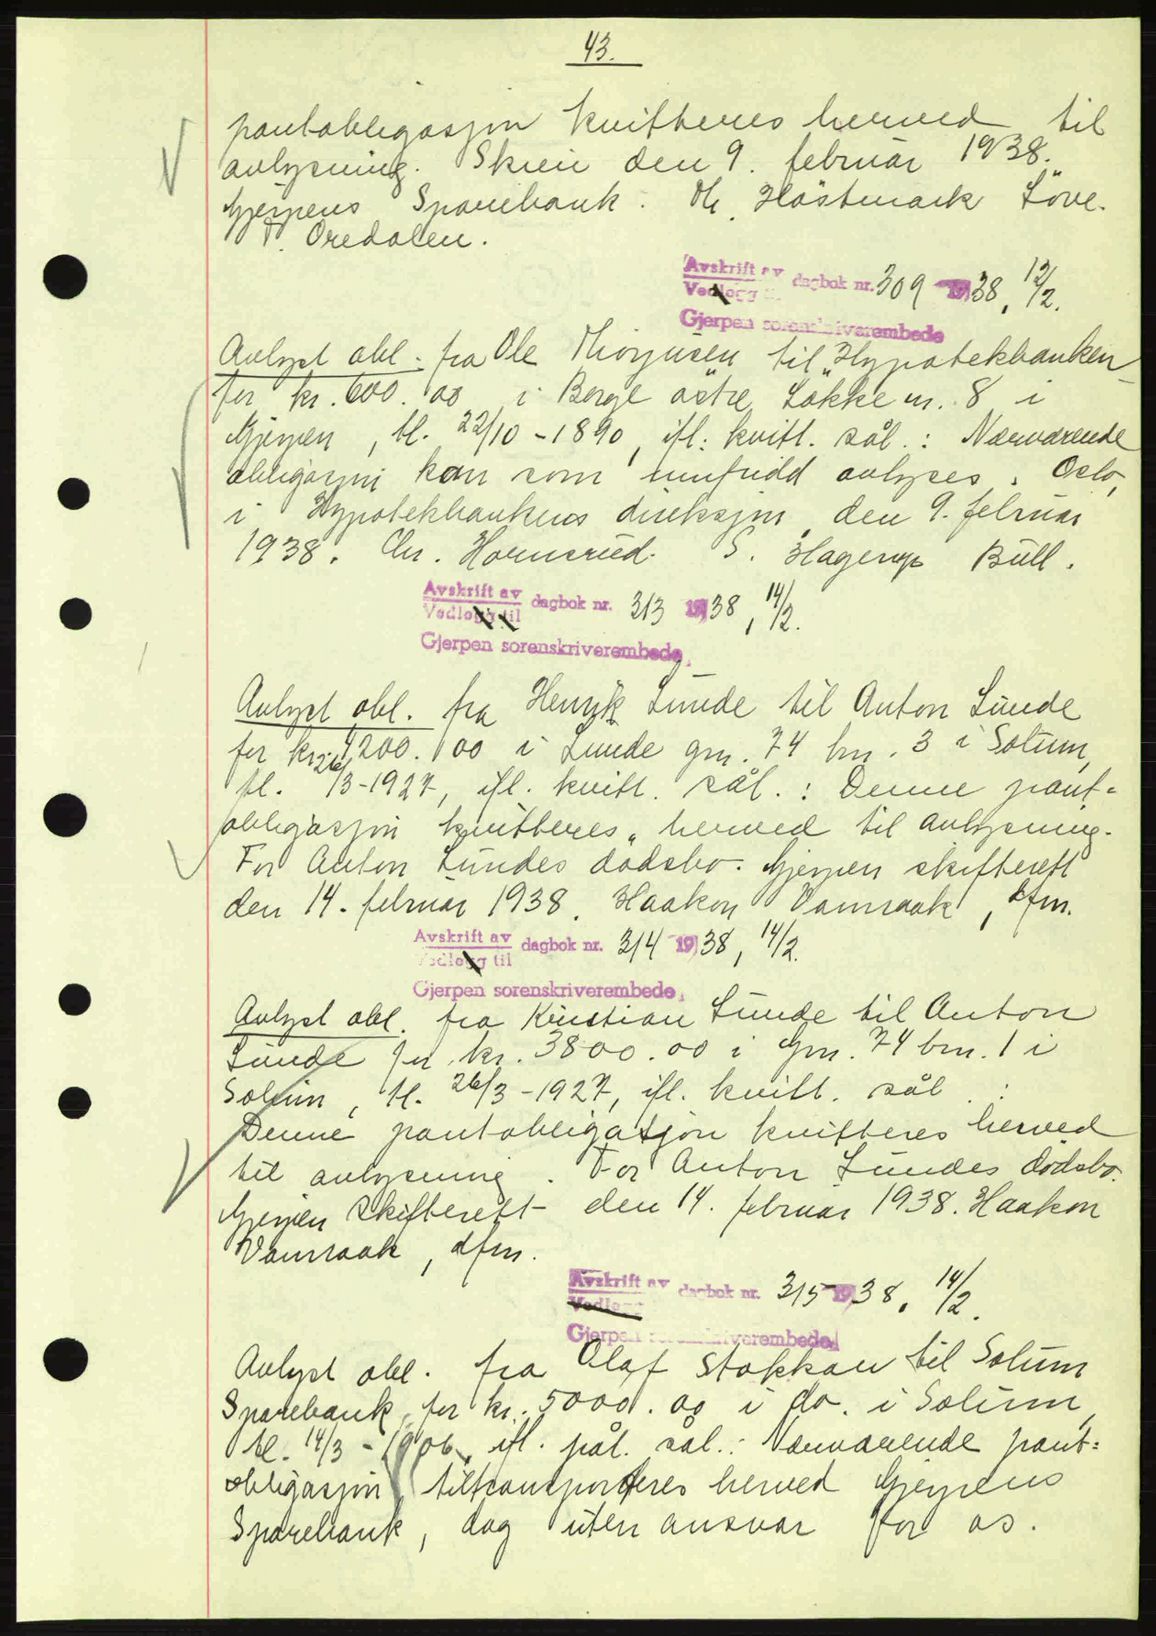 43.
pantobligasjon kvitteres herved til
avlysning. Skien den 9. februar 1938.
Gjerpens Sparebank. Höstmark Löve.
T. Oredalen.
Avskrift av dagbok nr. 309 1938, 12/2.
Vedlegg til
Gjerpen sorenskriverembede
Avlyst obl. fra Ole Thorjusen til Hypotekbanken
for kr. 600.00 i Borge östre Lökke nr. 8 i
Gjerpen, tl. 22/10-1890, ifl. kvitt. sål.: Nærværende
obligasjon kan som innfridd avlyses. Oslo,
i Hypotekbankens direksjon, den 9. februar
1938. Chr. Hornsrud. S. Hagerup Bull.
Avskrift av dagbok nr. 313 1938, 14/2.
Vedlegg til
Gjerpen sorenskriverembede,
Avlyst obl. fra Henrik Lunde til Anton Lunde
for kr. 1200.00 i Lunde gnr. 74 bnr. 3 i Solum,
tl. 26/3-1927, ifl. kvitt. sål.: Denne pant-
obligasjon kvitteres herved til avlysning.
For Anton Lundes dödsbo. Gjerpen skifterett
den 14. februar 1938. Haakon Vamraak, dfm.
Avskrift av dagbok nr. 314 1938, 14/2.
Vedlegg til
Gjerpen sorenskriverembede,
Avlyst obl. fra Kristian Lunde til Anton
Lunde for kr. 3800.00 i gnr. 74 bnr. 1 i
Solum, tl. 26/3-1927, ifl. kvitt. sål.:
Denne pantobligasjon kvitteres herved
til avlysning. For Anton Lundes dödsbo.
Gjerpen skifterett den 14. februar 1938. Haakon
Vamraak, dfm.
Avskrift av dagbok nr. 315 1938, 14/2.
Vedlegg
Gjerpen sorenskriverembede,
Avlyst obl. fra Olaf Stokkan til Solum
Sparebank, for kr. 5000.00 i do. i Solum,
tl. 14/3-1906, ifl. påt. sål.: Nærværende pant-
obligasjon tiltransporteres herved Gjerpens
Sparebank, dog uten ansvar for os.